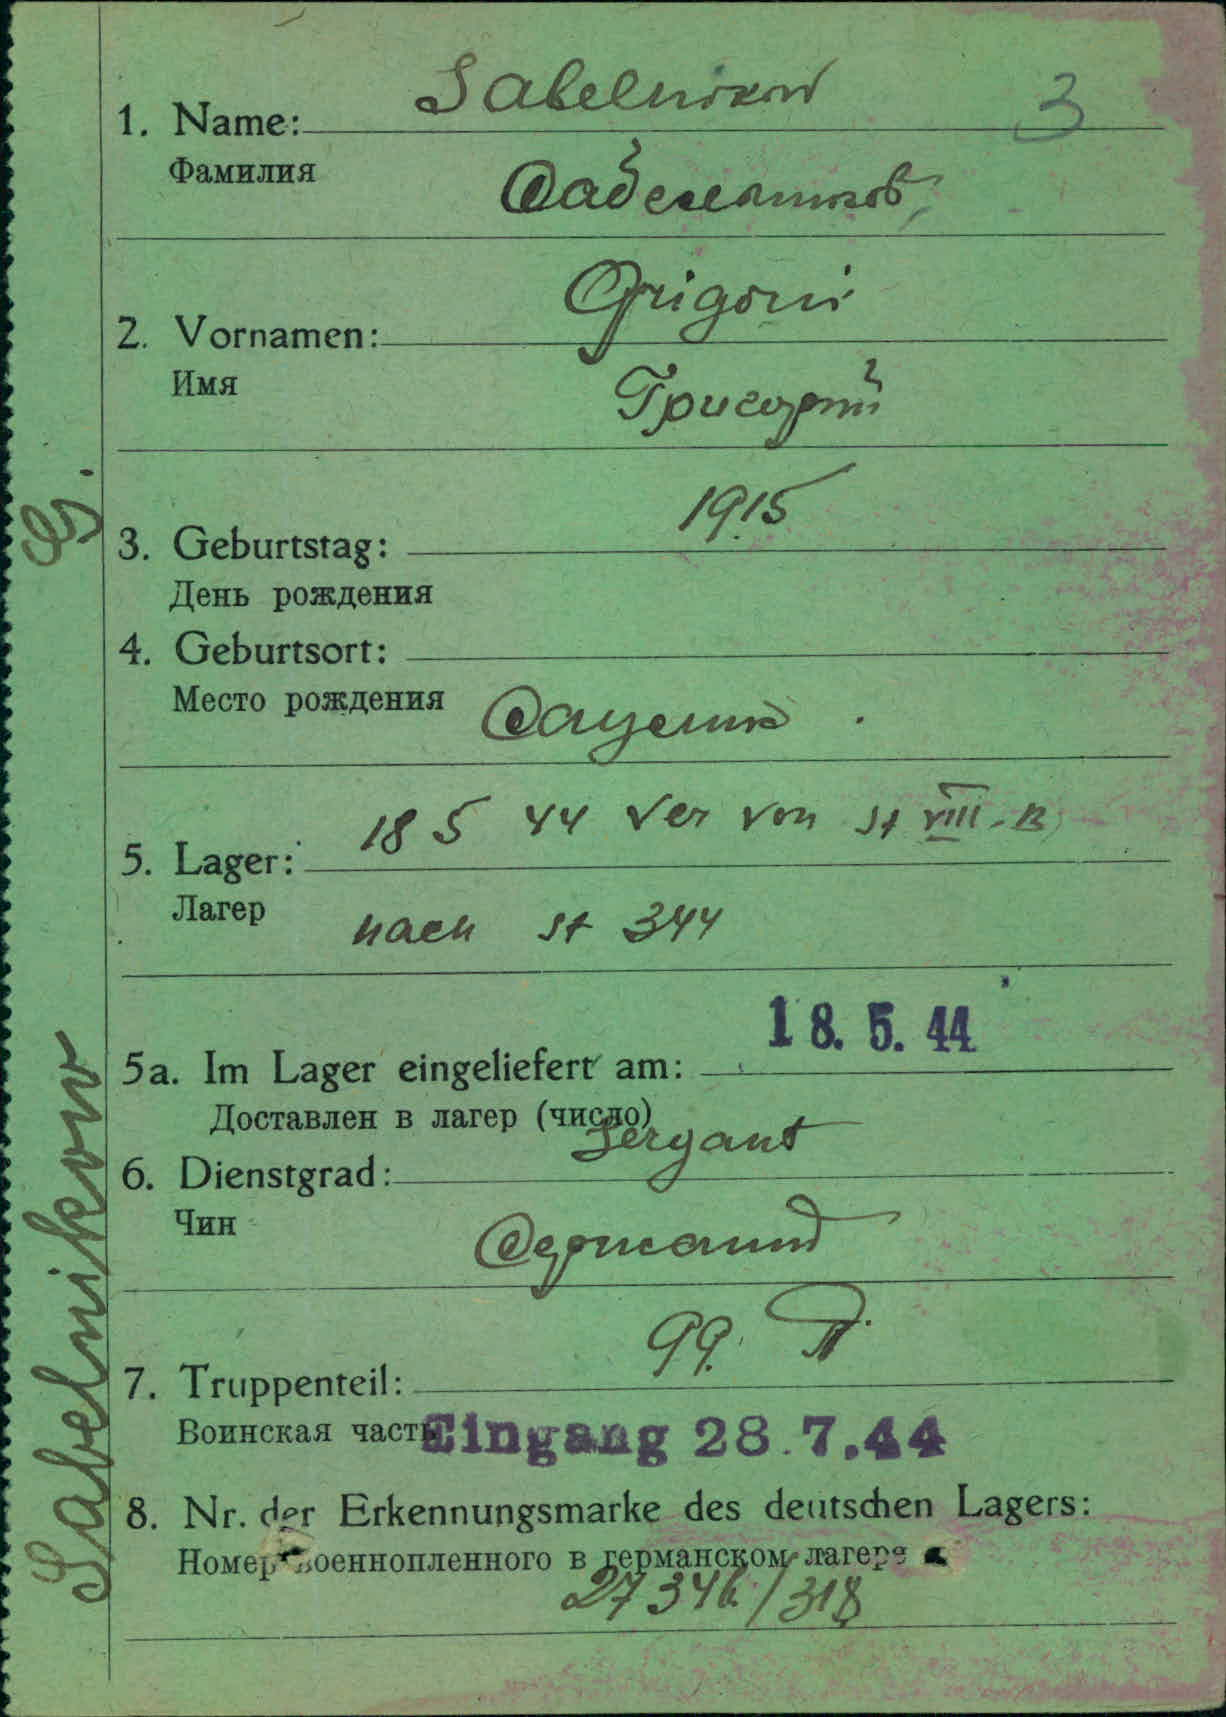 Sabelnikow
3
1. Name:
Фамилия
Сабельников
Grigori
2. Vornamen:
Имя
Григорий
1915
3. Geburtstag:
День рождения
4. Geburtsort:
Место рождения
18 5 44 Ver von St VIII-B
5. Lager:
Лагер
nach St 344
18. 5. 44
5a. Im Lager eingeliefert am:
Доставлен в лагер (число)
Sergant
6. Dienstgrad:
Чин
Сержант
99.
7. Truppenteil:
Воинская часть
Eingang 28.7.44
8. Nr. der Erkennungsmarke des deutschen Lagers:
Номер военнопленного в германском лагере
27346/318
Sabelnikow G.